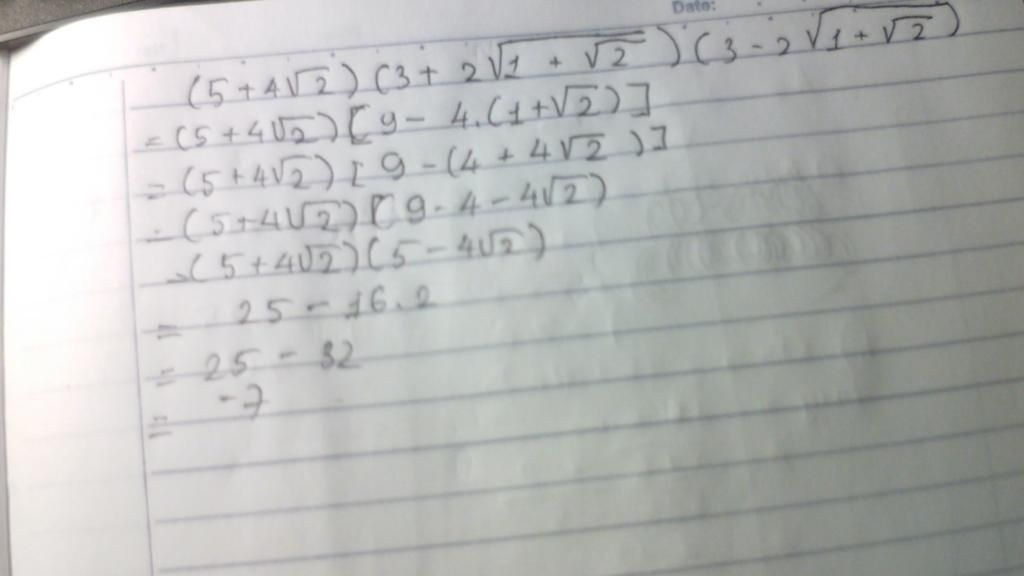 Date:
(5+4√2)(3+2√(1+√2))(3-2√(1+√2))
=(5+4√2)[9-4.(1+√2)]
=(5+4√2)[9-(4+4√2)]
=(5+4√2)[9-4-4√2)
=(5+4√2)(5-4√2)
= 25-16.2
= 25-32
= -7